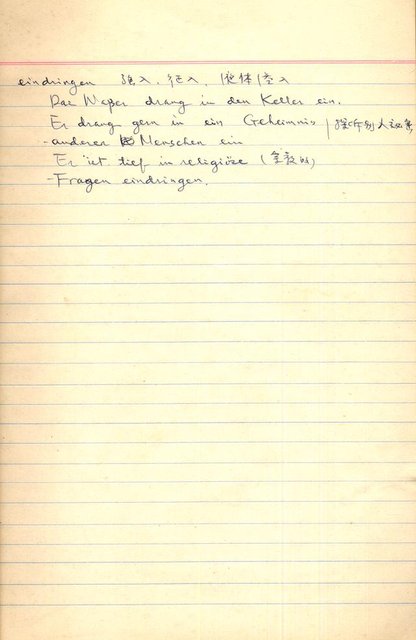 eindringen 强入、征入、液体侵入
Das Waßer drang in den Keller ein.
Er drang gern in ein Geheimnis | 探听别人秘密
anderer Menschen ein
Er ist tief in religiöze (宗教的)
Fragen eindringen.